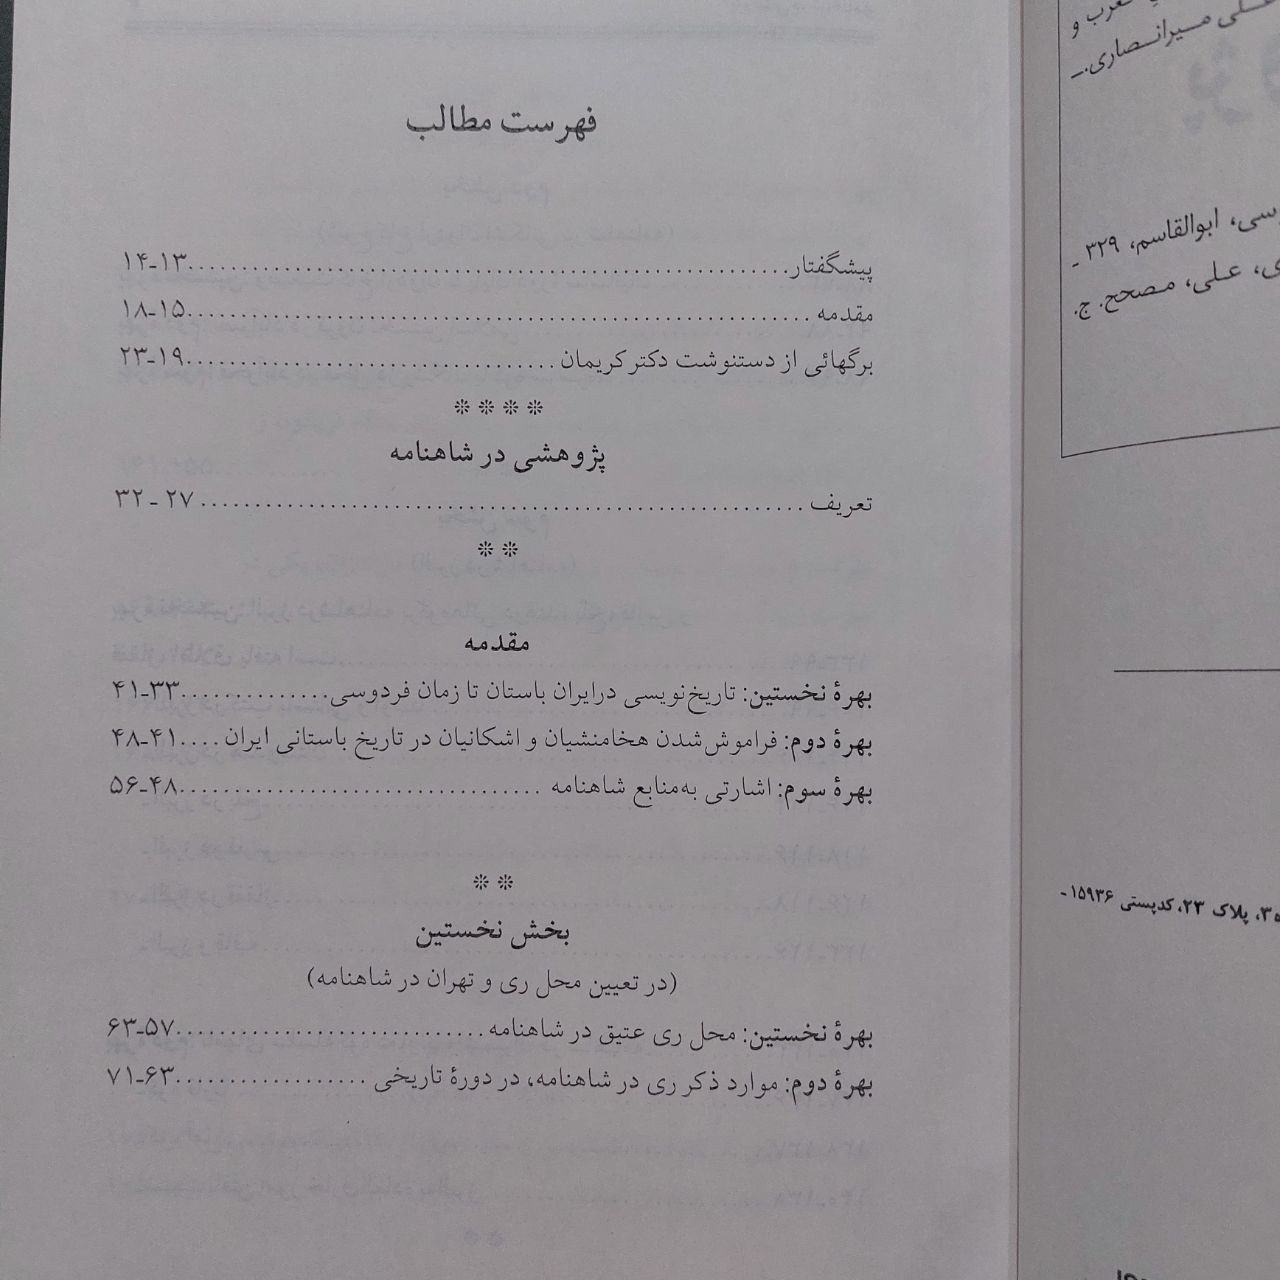 فهرست مطالب
پیشگفتار........................................................۱۳ـ۱۴
مقدمه ........................................................۱۵ـ۱۸
برگهائی از دستنوشت دکتر کریمان ..................................۱۹ـ۲۳
❊ ❊ ❊ ❊
پژوهشی در شاهنامه
تعریف ........................................................ ۲۷ ـ ۳۲
❊ ❊
مقدمه
بهرهٔ نخستین: تاریخ‌نویسی درایران باستان تا زمان فردوسی..............۳۳ـ۴۱
بهرهٔ دوم: فراموش‌شدن هخامنشیان و اشکانیان در تاریخ باستانی ایران ....۴۱ـ۴۸
بهرهٔ سوم: اشارتی به‌منابع شاهنامه ..................................۴۸ـ۵۶
❊ ❊
بخش نخستین
(در تعیین محل ری و تهران در شاهنامه)
بهرهٔ نخستین: محل ری عتیق در شاهنامه ..............................۵۷ـ۶۳
بهرهٔ دوم: موارد ذکر ری در شاهنامه، در دورهٔ تاریخی ..................۶۳ـ۷۱
و
میرانصاری.ـ
ابوالقاسم، ۳۲۹ ـ
علی، مصحح. ج.
پلاک ۲۳، کدپستی ۱۵۹۳۶ـ